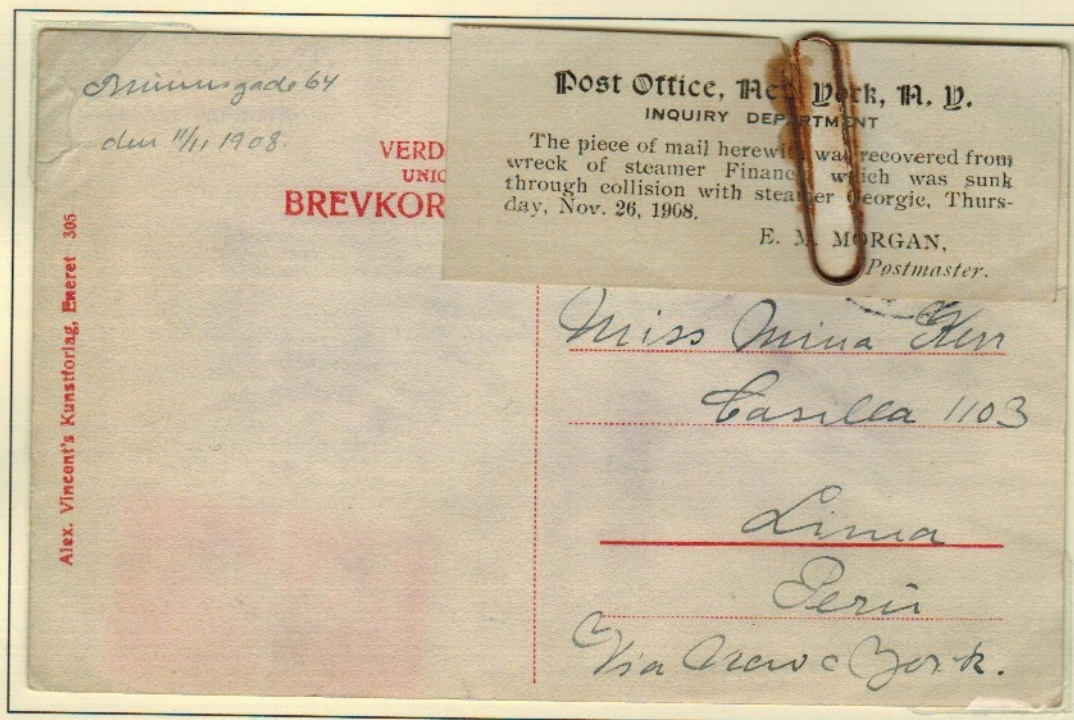 64
den 11/11 1908.
VERD
UNIO
BREVKOR
Alex. Vincent's Kunstforlag, Eneret 305
Post Office, New York, N. Y.
INQUIRY DEPARTMENT
The piece of mail herewith was recovered from
wreck of steamer Finance which was sunk
through collision with steamer Georgic, Thurs-
day, Nov. 26, 1908.
E. M. MORGAN,
Postmaster.
Miss Mina Kerr
Casilla 1103
Lima
Perú
Via New York.